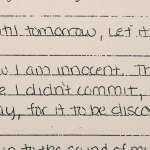 until tomorrow, let it
I am innocent. Th
I didn't commit,
ay, for it to be disco
up to the sound of my